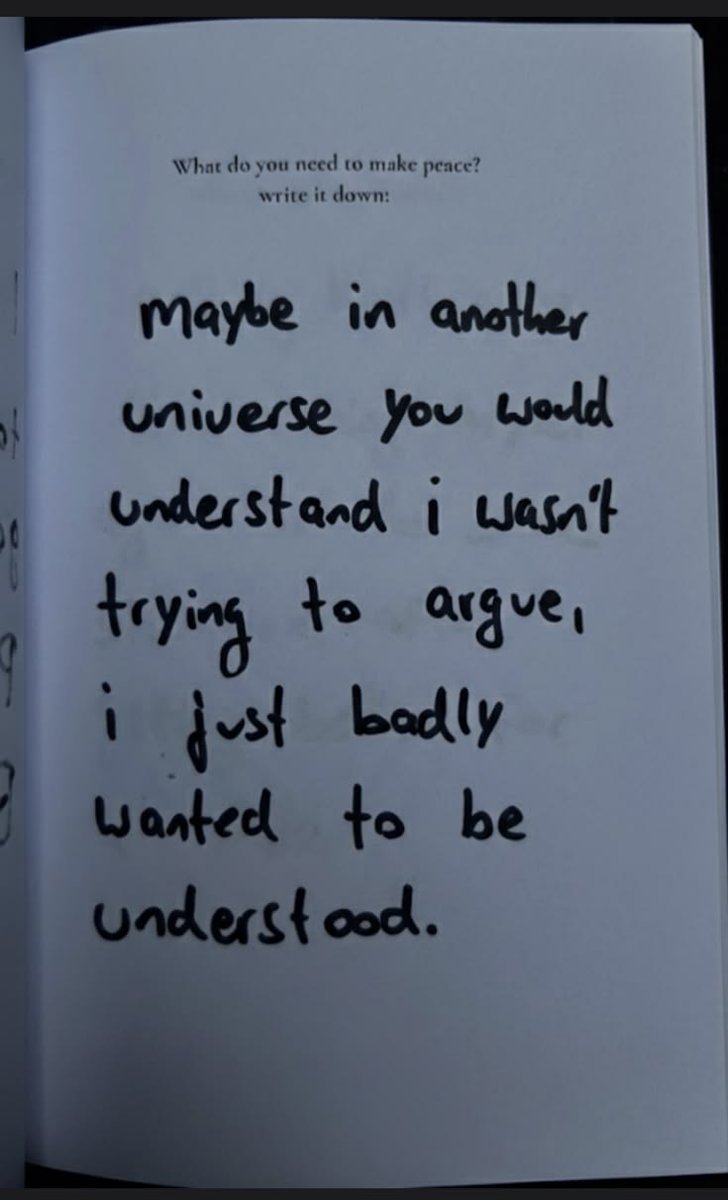 What do you need to make peace?
write it down:
maybe in another
universe you would
understand i wasn't
trying to argue,
i just badly
wanted to be
understood.